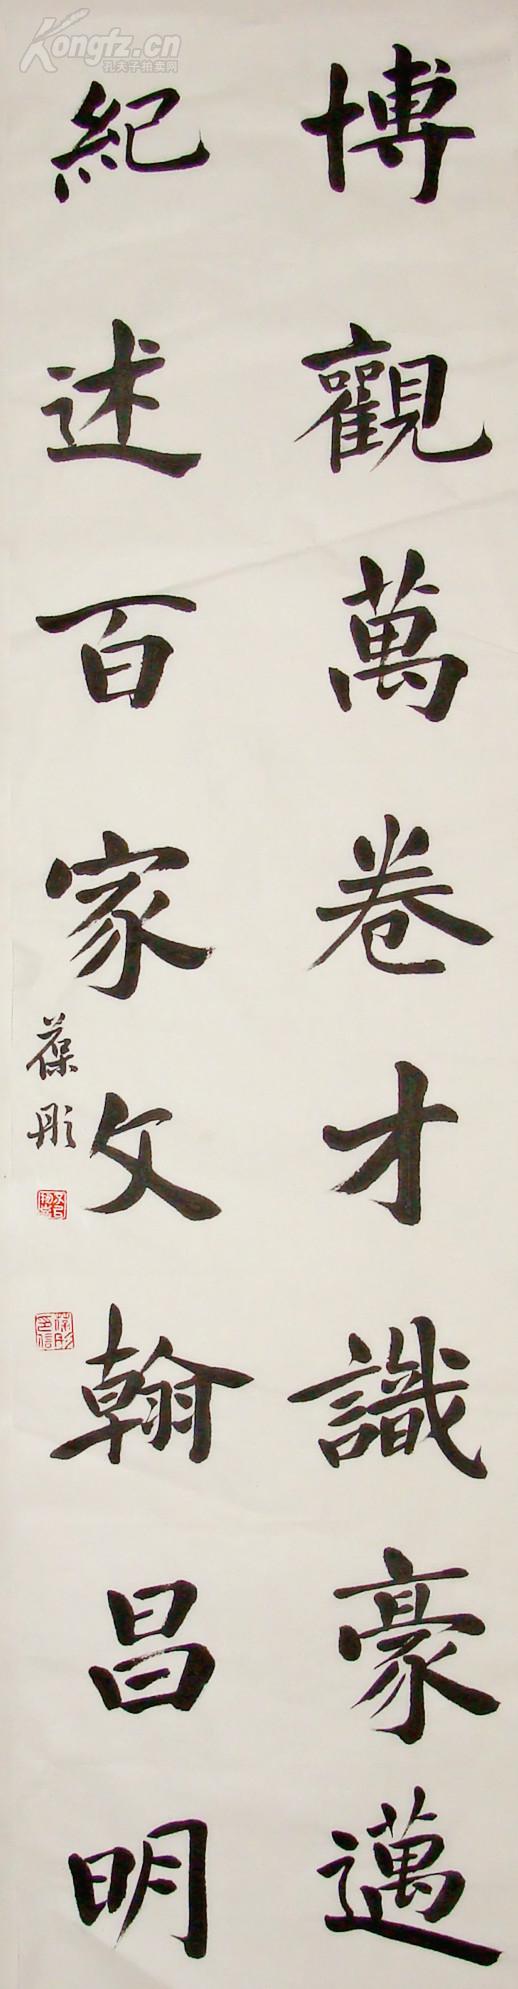 博觀萬卷才識豪邁
紀述百家文翰昌明
葆彤
Kongfz.cn
孔夫子拍卖网